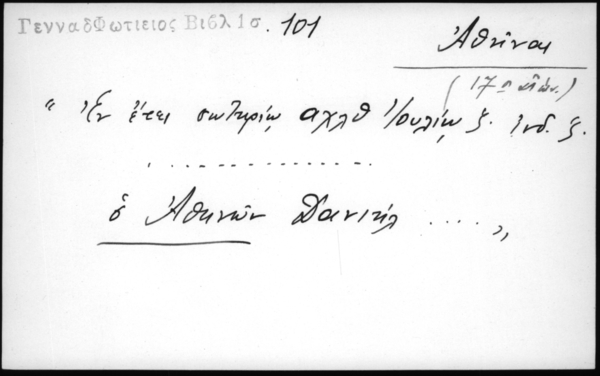 ΓενναδΦωτιειος Βιβλ 1σ. 101
Ἀθῆναι
(17ος αἰών.)
" Ἐν ἔτει σωτηρίῳ αχλθ Ἰουλίῳ ξ. Ἰνδ. ξ.
. . . . . . . . . . . . . . . .
ὁ Ἀθηνῶν Δανιήλ .... "